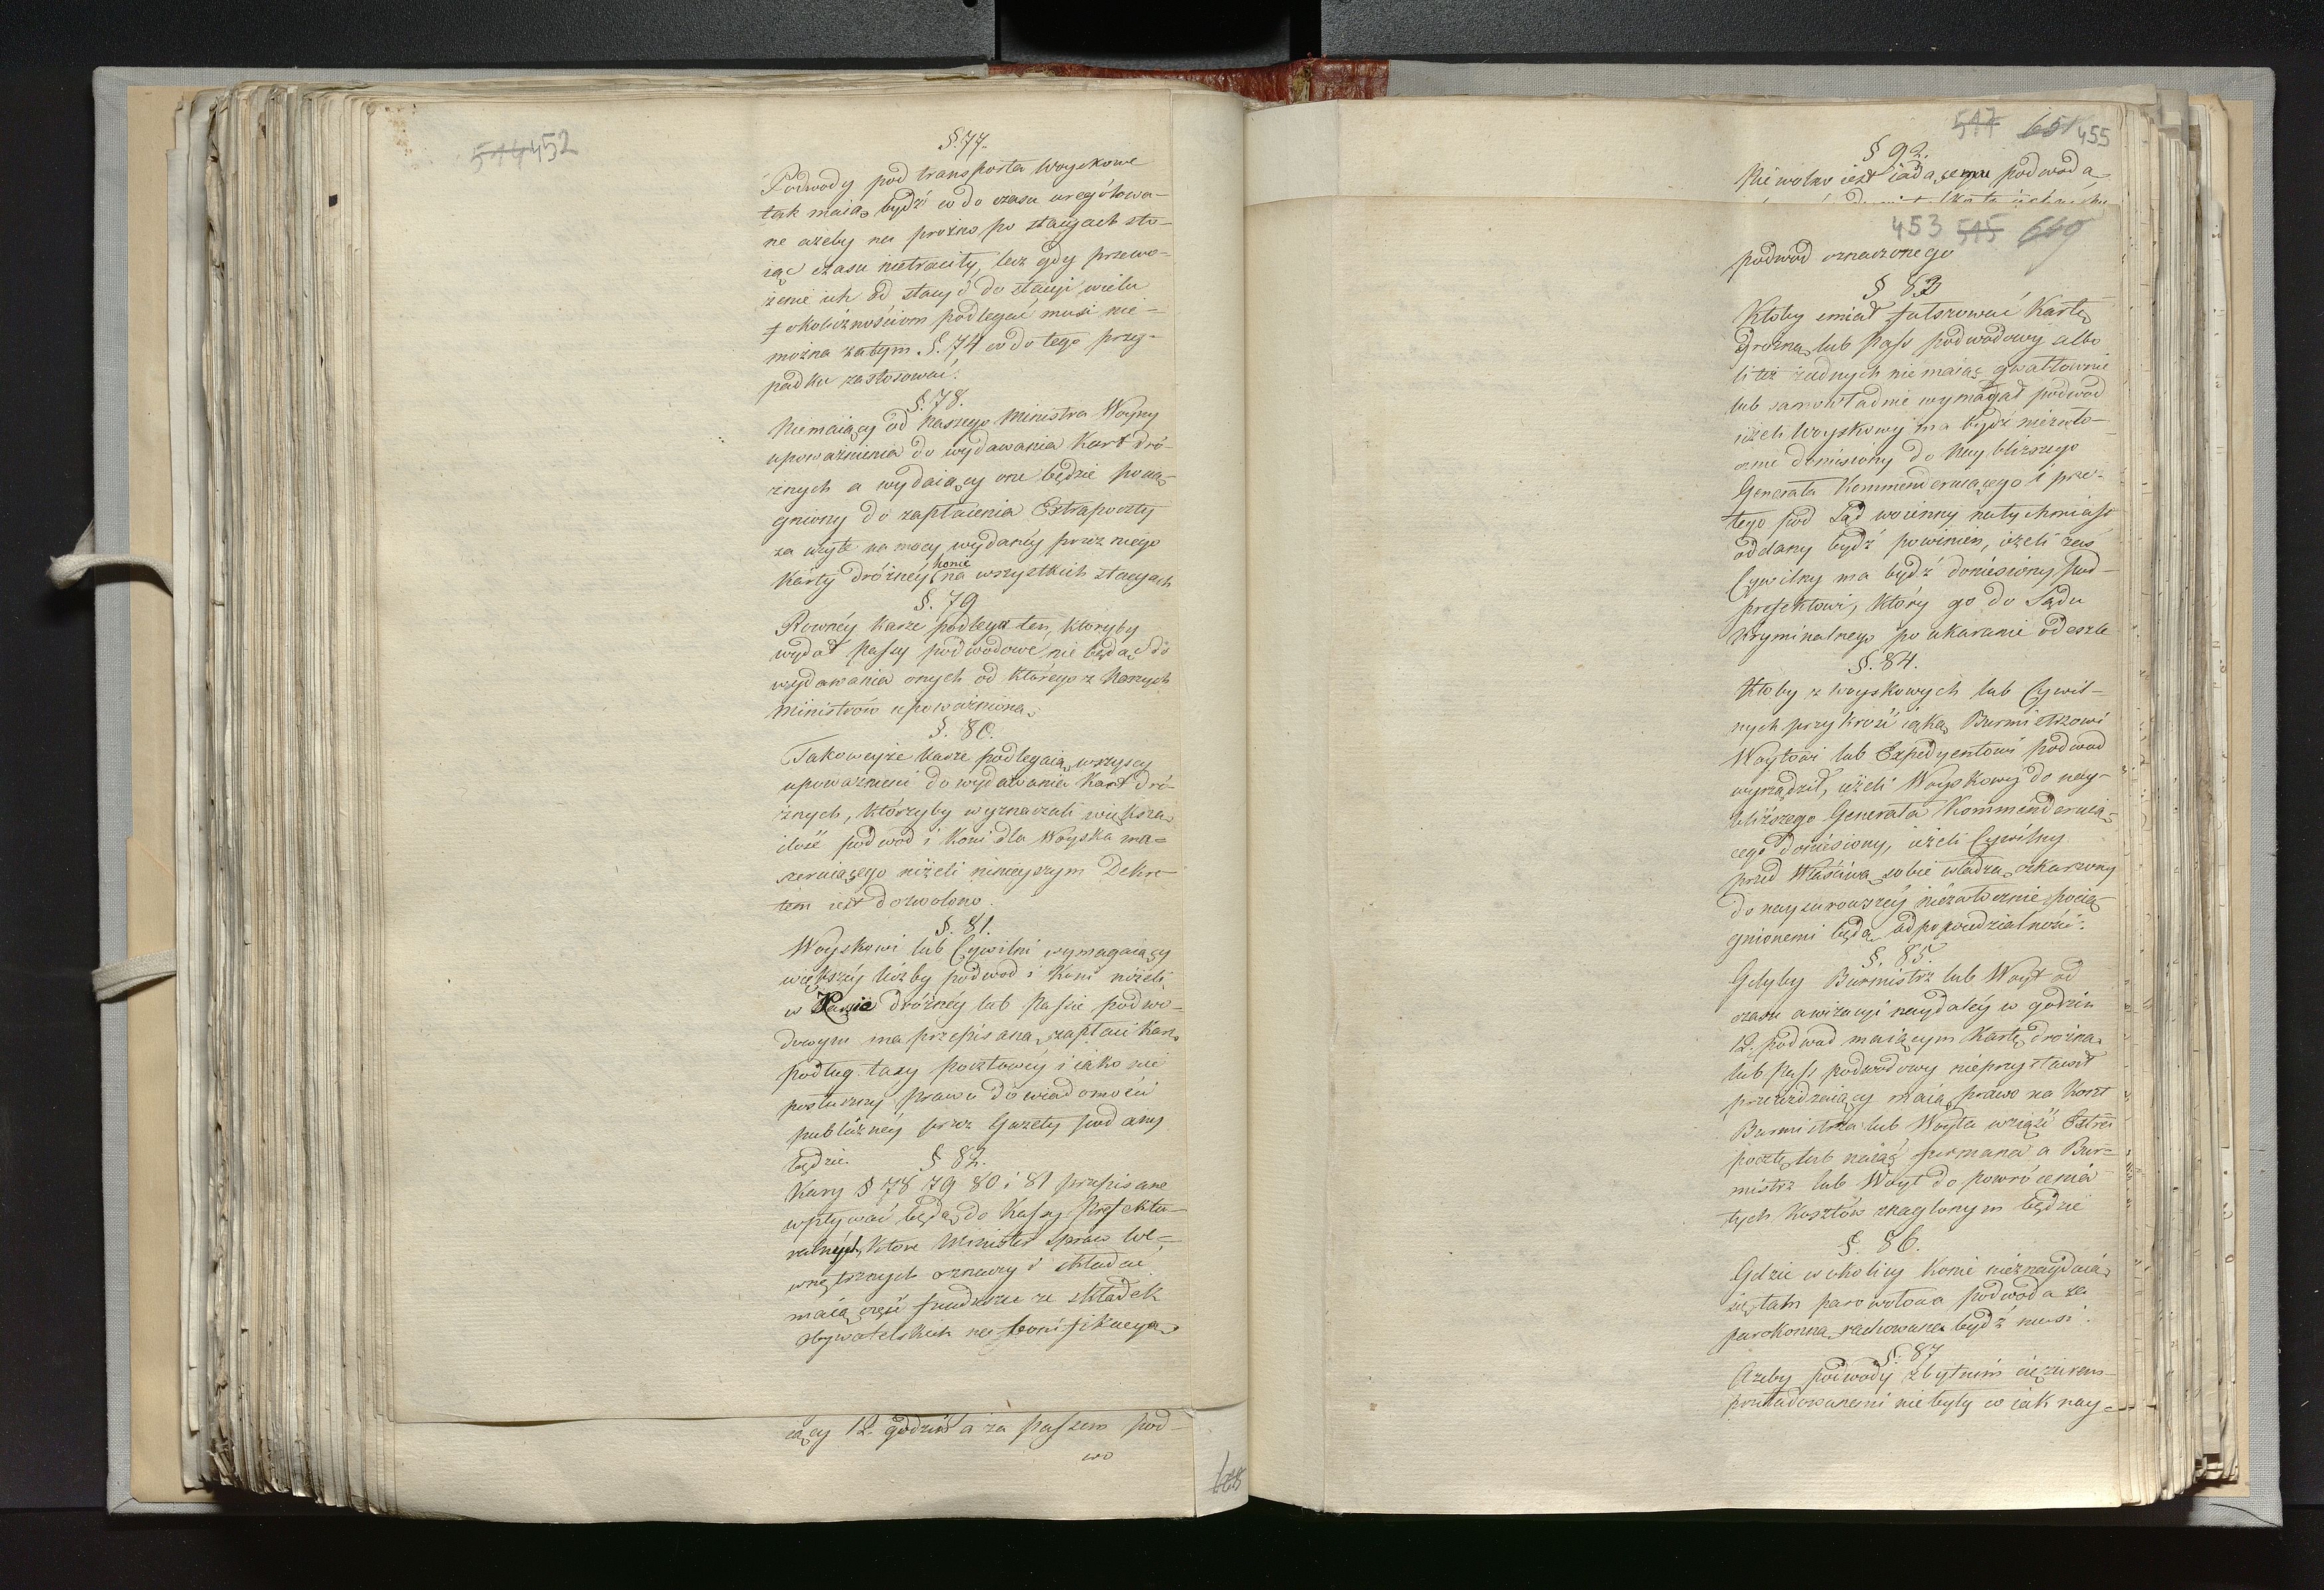 514 452
§. 77.
Podwody pod transporta Woyskowe
tak maią bydź co do czasu uregulowa-
ne ażeby na prożno po stacyach sto-
iąc czasu nietraciły, lecz gdy przewo-
żenie ich od stacyi do stacyi wielu
okolicznościom podlegać musi nie-
można zatym §. 74 co do tego przy-
padku zastosować.
§. 78.
Niemaiący od Naszego Ministra Woyny
upoważnienia do wydawania Kart dro-
żnych a wydaiący one będzie pocią-
gniony do zapłacenia Extrapoczty
za użyte na mocy wydanéy przez niego
Karty dróżnéy konie na wszystkich stacyach
§. 79
Rownéy karze podlega ten, ktoryby
wydał Passy podwodowe nie będąc do
wydawania onych od którego z Naszych
Ministrów upoważniony
§. 80.
Takoweyże karze podlegaią wszyscy
upoważnieni do wydawania Kart dro-
żnych, którzyby wyznaczali większą
ilość podwod i Koni dla Woyska ma-
szeruiącego niżeli ninieyszym Dekre-
tem iest dozwolono.
§. 81.
Woyskowi lub Cywilni wymagaiący
większéy liczby podwod i Koni niżeli
w Karcie dróżnéy lub Passie podwo-
dowym ma przepisaną zapłaci karę
podług taxy pocztowéy i iako nie
posłuszny prawu do wiadomości
publicznéy przez Gazety podany
będzie.
§ 82.
Kary § 78 79 80 i 81 przepisane
wpływać będą do Kassy Prefektu-
ralnych, ktore Minister Spraw We-
wnętrznych oznaczy i składać
maią część funduszu ze składek
obywatelskich na bonifikacyą
iący 12 godzin a za passem pod-
wo
618
517 651 455
§ 92.
Nie wolno iest iadącemu podwodą
453 515 650
podwod oznaczonego
§ 83
Ktoby smiał fałszować Kartę
Drożną lub Pass podwodowy albo
li też żadnych nie maiąc gwałtownie
lub samowładnie wymagał podwod
ieżeli Woyskowy ma bydź niezwło-
cznie doniesiony do Nay bliższego
Generała Kommenderuiącego i prze-
tego pod Sąd woienny natychmiast
oddany bydź powinien, ieżeli zaś
Cywilny ma bydź doniesiony Pod-
prefektowi, który go do Sądu
Kryminalnego po ukaranie odeszle
§. 84.
Ktoby z Woyskowych lub Cywil-
nych przykrość iaką Burmistrzowi
Woytowi lub Expedyentowi podwod
wyrządził, ieżeli Woyskowy do nay-
bliższego Generała Kommenderuią-
cego doniesiony, ieżeli Cywilny
przed Właściwą sobie władzą oskarżony
do naysurowszéy niezwłocznie pocią-
gnionemi będą odpowiedzialności.
§. 85.
Gdyby Burmistrz lub Woyt od
czasu awizacyi naydaléy w godzin
12. podwod maiącym Kartę drożną
lub Pass podwodowy nieprzystawił
przeieżdżaiący maią prawo na koszt
Burmistrza lub Woyta wziąść Extra
pocztę lub naiąć furmana a Bur-
mistrz lub Woyt do powrócenia
tych kosztów znaglonym będzie
§. 86.
Gdzie w okolicy konie nieznayduią
się tam parowołowa podwoda za
parokonną rachowana bydź musi.
§. 87
Ażeby podwody zbytnim ciężarem
przeładowanemi nie były w iak nay-